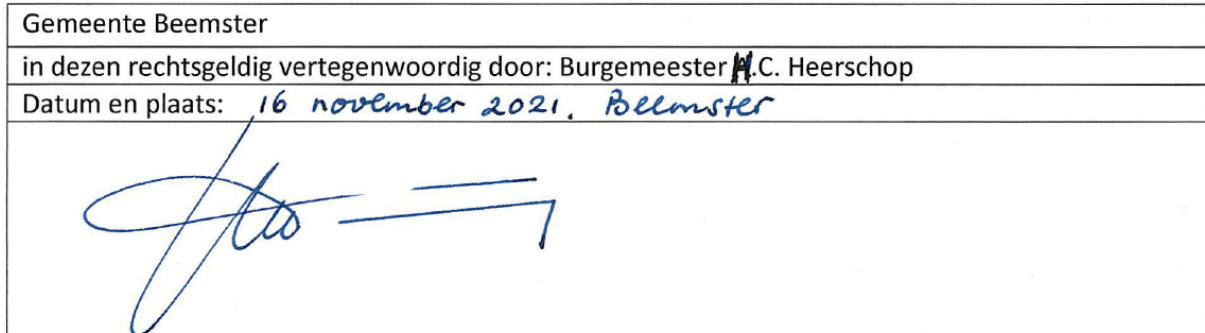 Gemeente Beemster
in dezen rechtsgeldig vertegenwoordig door: Burgemeester H.C. Heerschop
Datum en plaats: 16 november 2021, Beemster